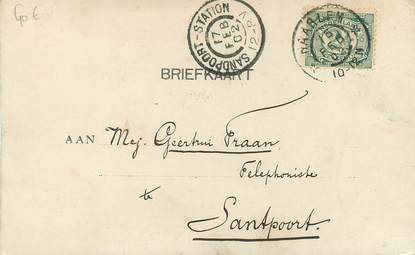 Gp €
SANDPOORT-STATION
17
FEB
02
8V-12
HAARLEM
10-12V
BRIEFKAART
AAN Mej. Geertrui Praan,
Telephoniste
te
Santpoort.